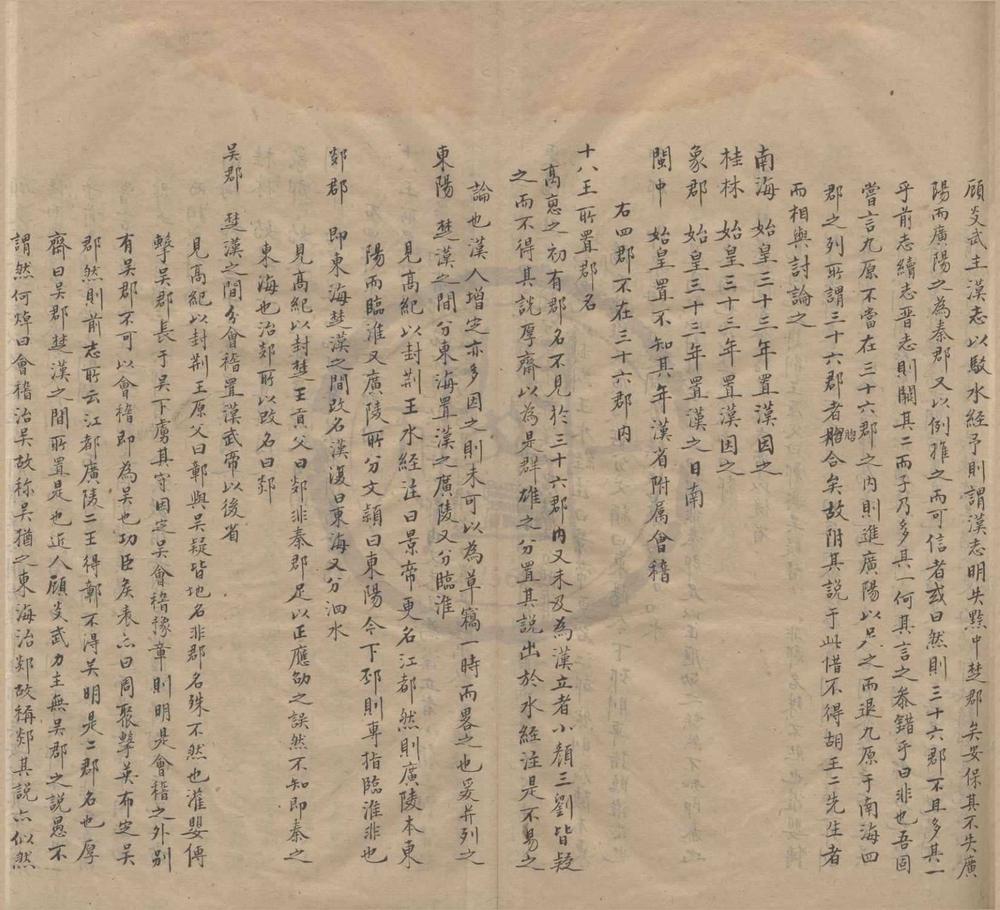 顧炎武主漢志以駁水經予則謂漢志明失黔中楚郡矣安保其不失廣
陽而廣陽之為秦郡又以例推之而可信者或曰然則三十六郡不且多其一
乎前志續志晋志則闕其二而子乃多其一何其言之叅錯乎曰非也吾固
嘗言九原不當在三十六郡之內則進廣陽以足之而退九原于南海四
郡之列所謂三十六郡者脗合矣故附其説于此惜不得胡王二先生者
而相與討論之
南海 始皇三十三年置漢因之
桂林 始皇三十三年置漢因之
象郡 始皇三十三年置漢之日南
閩中 始皇置不知其年漢省附属會稽
右四郡不在三十六郡內
十八王所置郡名
高帝之初有郡名不見於三十六郡內又未及為漢立者小顔三劉皆疑
之而不得其説厚齋以為是群雄之分置其説出於水經注是不易之
論也漢人增定亦多因之則未可以為草竊一時而畧之也爰并列之
東陽 楚漢之間分東海置漢之廣陵又分臨淮
見高紀以封荆王水經注曰景帝更名江都然則廣陵本東
陽而臨淮又廣陵所分文頴曰東陽今下邳則專指臨淮非也
郯郡 即東海楚漢之間改名漢復曰東海又分泗水
見高紀以封楚王貢父曰郯非秦郡足以正應劭之誤然不知即秦之
東海也治郯所以改名曰郯
吳郡 楚漢之間分會稽置漢武帝以後省
見高紀以封荆王原父曰鄣與吳疑皆地名非郡名殊不然也灌嬰傳
擊吳郡長于吳下虜其守因定吳會稽豫章則明是會稽之外別
有吳郡不可以會稽即為吳也功臣矦表亦曰周聚擊英布定吳
郡然則前志所云江都廣陵二王得鄣不得吳明是二郡名也厚
齋曰吳郡楚漢之間所置是也近人顧炎武力主無吳郡之説愚不
謂然何焯曰會稽治吳故称吳猶之東海治郯故稱郯其説亦似然